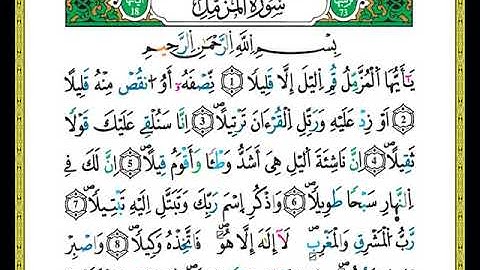 73 سُورَةُ الْمُزَّمِّلِ 18
بِسْمِ اللَّهِ الرَّحْمَٰنِ الرَّحِيمِ
يَٰٓأَيُّهَا اَ۬لْمُزَّمِّلُ قُمِ اِ۬ليْلَ إِلَّا قَلِيلًا ۝1 نِّصْفَهُۥٓ أَوُ اُ۟نقُصْ مِنْهُ قَلِيلًا
۝2 أَوْ زِدْ عَلَيْهِ وَرَتِّلِ اِ۬لْقُرْءَانَ تَرْتِيلًا ۝3 اِنَّا سَنُلْقِے عَلَيْكَ قَوْلًا
ثَقِيلًا ۝4 اِنَّ نَاشِئَةَ اَ۬ليْلِ هِيَ أَشَدُّ وَطْـًٔا وَأَقْوَمُ قِيلًا ۝5 اِنَّ لَكَ فِے
اِ۬لنَّهَارِ سَبْحًا طَوِيلًا ۝6 وَاذْكُرِ اِ۪سْمَ رَبِّكَ وَتَبَتَّلِ اِلَيْهِ تَبْتِيلًا ۝7
رَّبُّ اُ۬لْمَشْرِقِ وَالْمَغْرِبِ لَآ إِلَٰهَ إِلَّا هُوَ فَاتَّخِذْهُ وَكِيلًا ۝8 وَاصْبِرْ